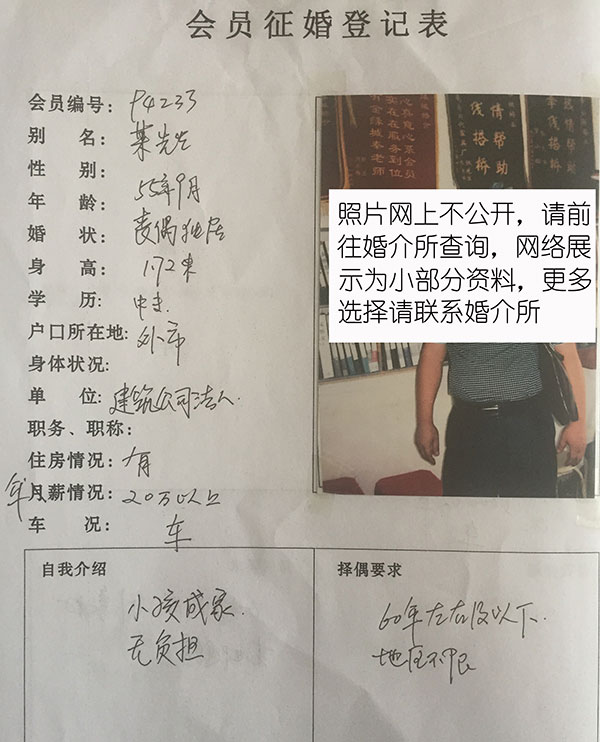 会员征婚登记表
会员编号：P4233
别 名：某先生
性 别：
年 龄：55年9月
婚 状：丧偶独居
身 高：1.72米
学 历：中专
户口所在地：外市
身体状况：
单 位：建筑公司法人
职务、职称：
住房情况：有
年月薪情况：20万以上
车 况：车
自我介绍
小孩成家.
无负担
择偶要求
60年左右及以下.
地区不限
照片网上不公开，请前
往婚介所查询，网络展
示为小部分资料，更多
选择请联系婚介所
心真意心系会员
实在在服务到位
情帮助
线搭桥
情帮助
牵线搭桥